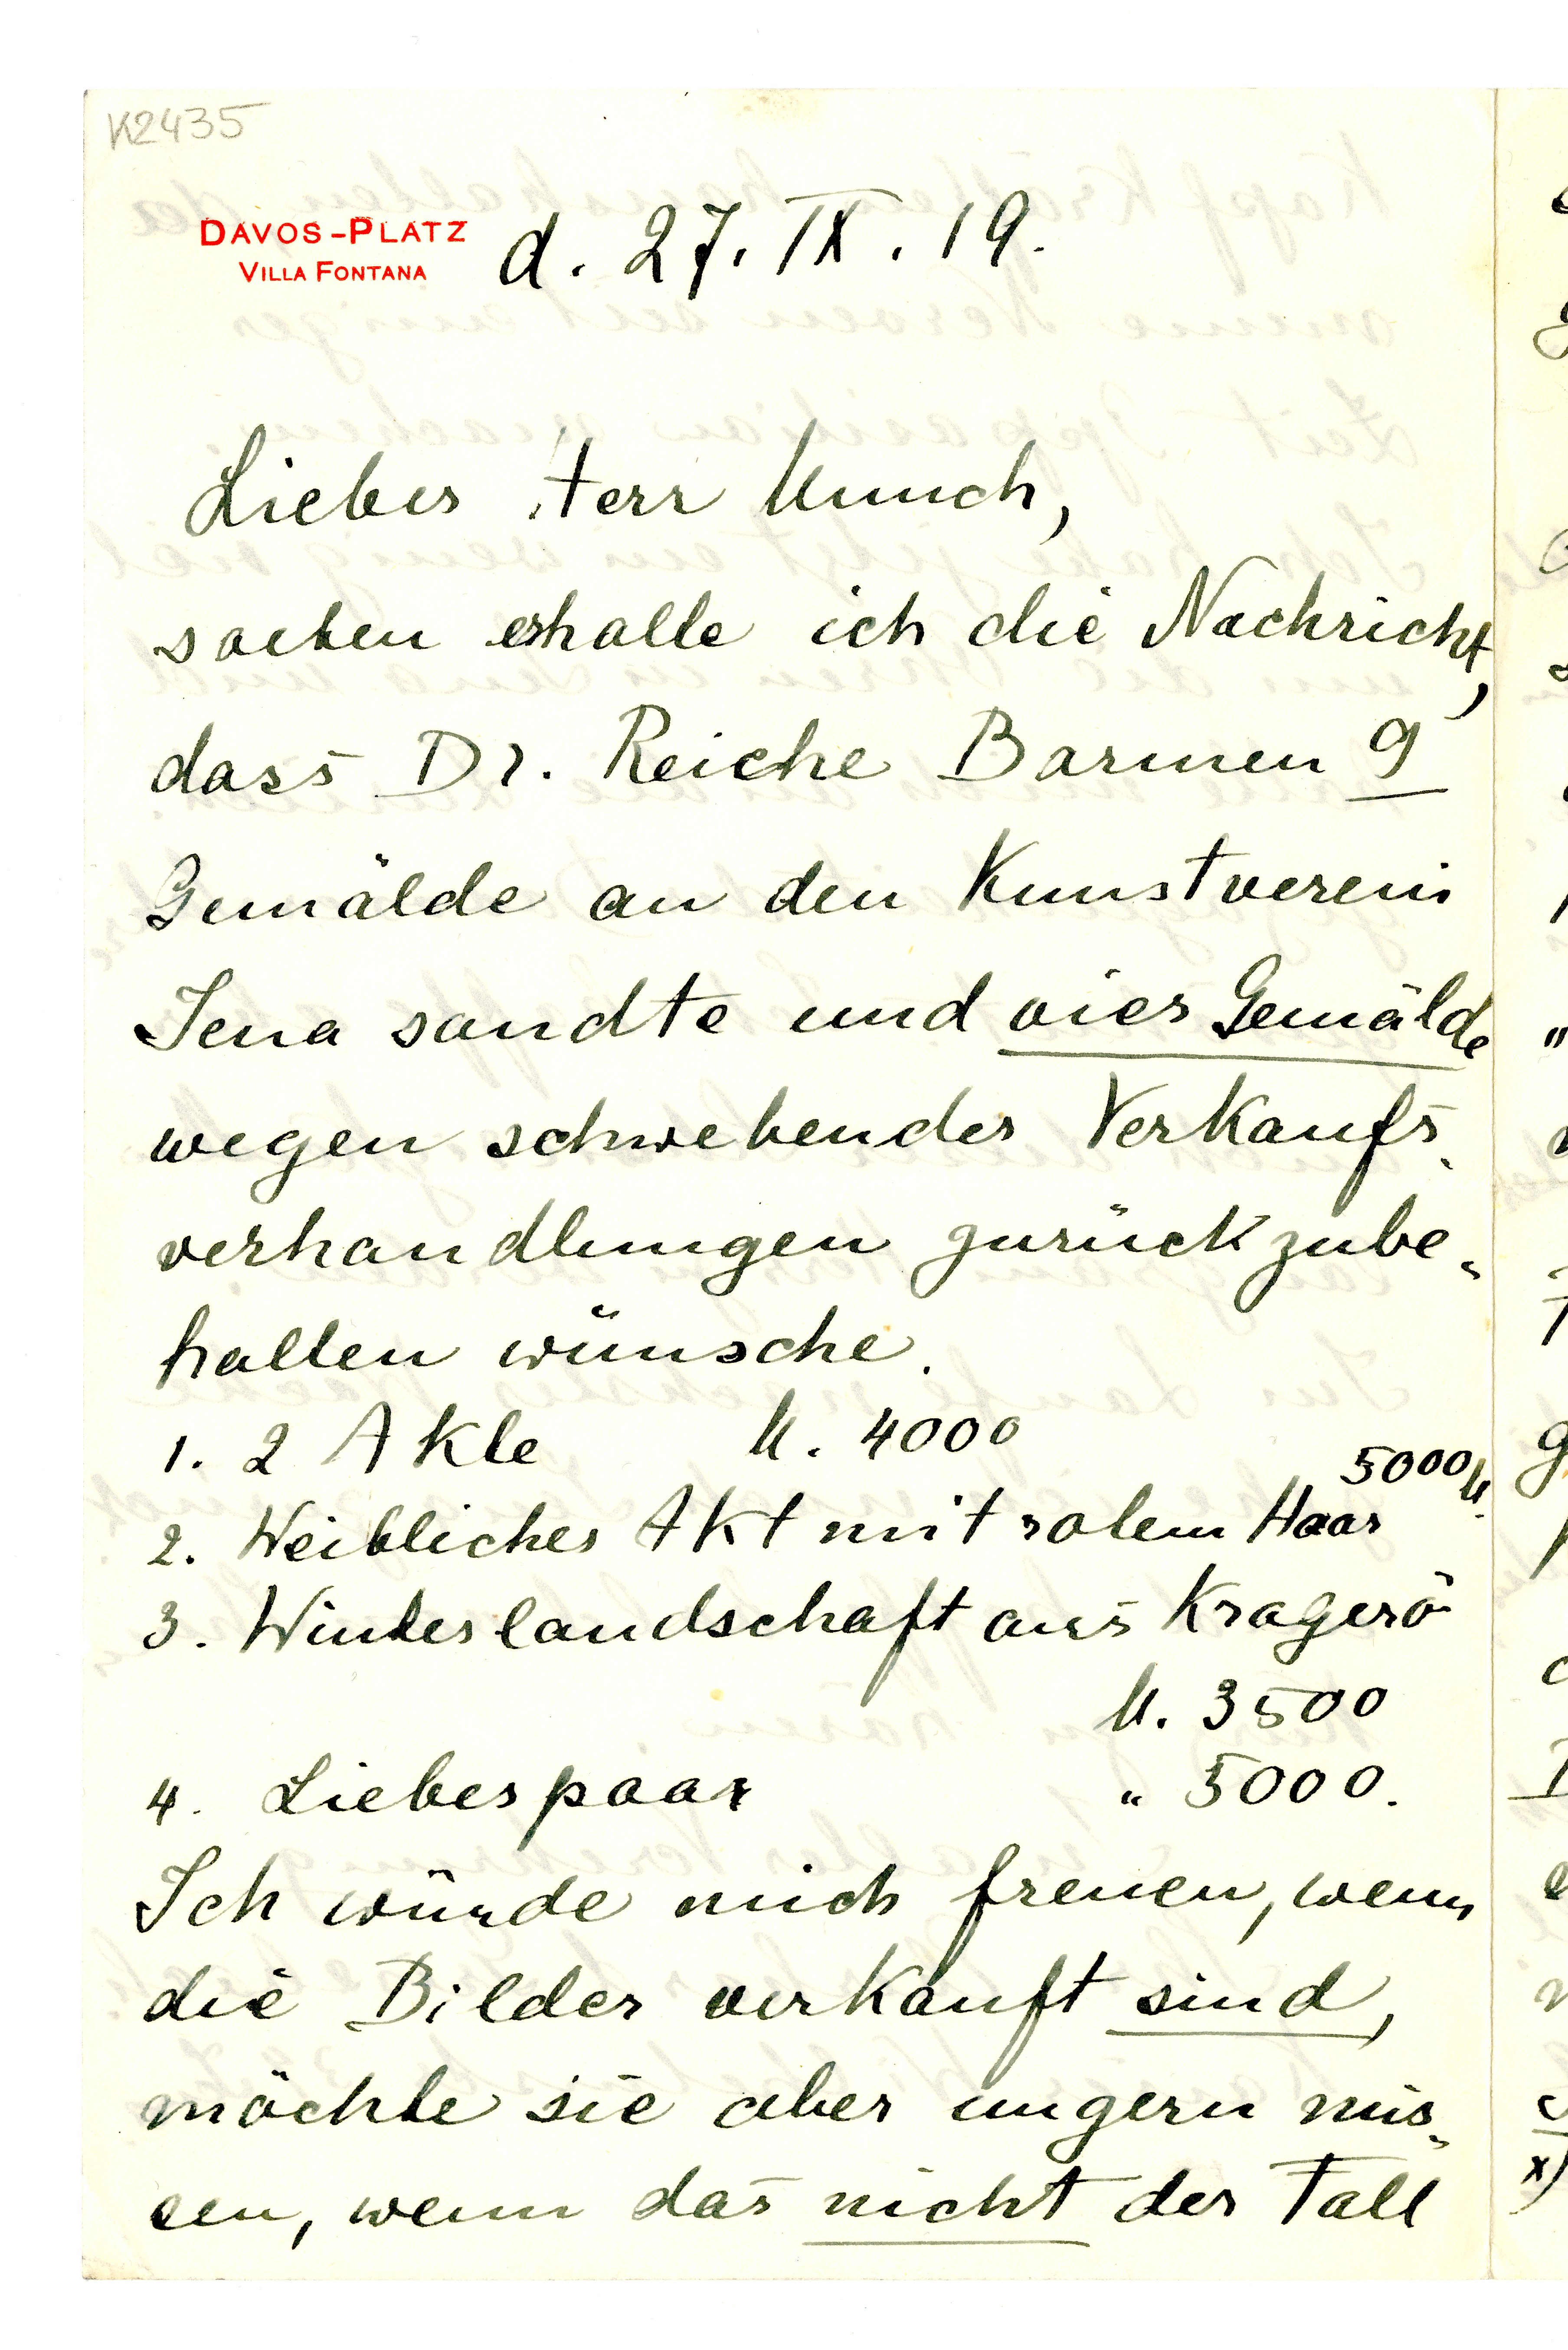 K2435
DAVOS-PLATZ d. 27. IX. 19.
VILLA FONTANA
Lieber Herr Munch,
soeben erhalte ich die Nachricht,
dass Dr. Reiche Barmen 9
Gemälde an den Kunstverein
Jena sandte und vier Gemälde
wegen schwebender Verkaufs-
verhandlungen zurückzube-
halten wünsche.
1. 2 Akte M. 4000
5000 M.
2. Weiblicher Akt mit rotem Haar
3. Winterlandschaft aus Kragerö
M. 3500
4. Liebespaar " 5000.
Ich würde mich freuen, wenn
die Bilder verkauft sind,
möchte sie aber ungern mis-
sen, wenn das nicht der Fall